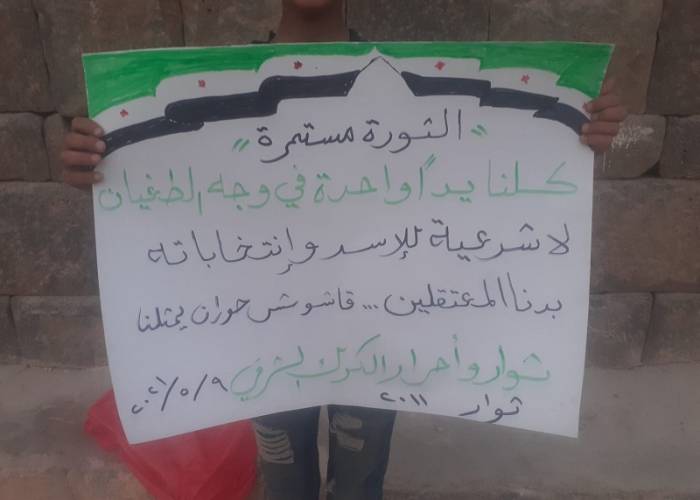 "الثورة مستمرة"
كلنا يداً واحدة في وجه الطغيان
لا شرعية للإسد وإنتخاباته
بدنا المعتقلين... قاشوش حوران يمثلنا
ثوار وأحرار الكرك الشرقي
ثوار ٢٠١١
٢٠٢١/٥/٩